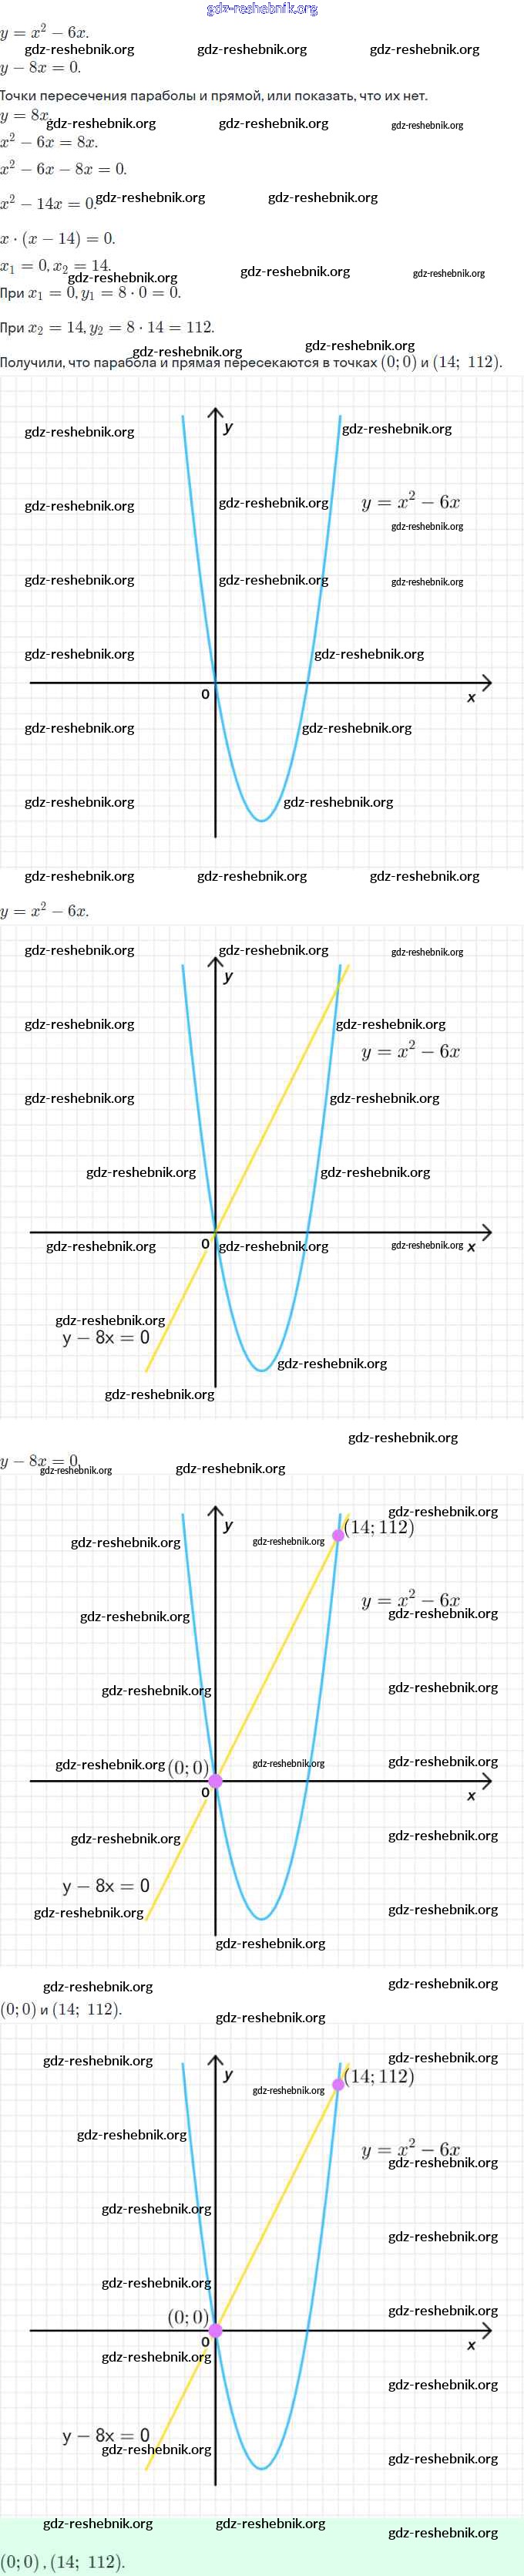 gdz-reshebnik.org
y = x² − 6x.
gdz-reshebnik.org gdz-reshebnik.org gdz-reshebnik.org
y − 8x = 0.
Точки пересечения параболы и прямой, или показать, что их нет.
y = 8x.
gdz-reshebnik.org gdz-reshebnik.org gdz-reshebnik.org
x² − 6x = 8x.
x² − 6x − 8x = 0.
x² − 14x = 0. gdz-reshebnik.org gdz-reshebnik.org
x · (x − 14) = 0.
x₁ = 0, x₂ = 14.
gdz-reshebnik.org gdz-reshebnik.org gdz-reshebnik.org
При x₁ = 0, y₁ = 8 · 0 = 0.
При x₂ = 14, y₂ = 8 · 14 = 112.
gdz-reshebnik.org gdz-reshebnik.org
Получили, что парабола и прямая пересекаются в точках (0; 0) и (14; 112).
y
gdz-reshebnik.org gdz-reshebnik.org
gdz-reshebnik.org gdz-reshebnik.org y = x² − 6x
gdz-reshebnik.org
gdz-reshebnik.org gdz-reshebnik.org gdz-reshebnik.org
gdz-reshebnik.org gdz-reshebnik.org
0 x
gdz-reshebnik.org gdz-reshebnik.org
gdz-reshebnik.org gdz-reshebnik.org
gdz-reshebnik.org gdz-reshebnik.org gdz-reshebnik.org
y = x² − 6x.
gdz-reshebnik.org gdz-reshebnik.org gdz-reshebnik.org
y
gdz-reshebnik.org gdz-reshebnik.org
y = x² − 6x
gdz-reshebnik.org gdz-reshebnik.org
gdz-reshebnik.org gdz-reshebnik.org
gdz-reshebnik.org 0 gdz-reshebnik.org gdz-reshebnik.org x
gdz-reshebnik.org
y − 8x = 0
gdz-reshebnik.org
gdz-reshebnik.org
gdz-reshebnik.org
y − 8x = 0.
gdz-reshebnik.org gdz-reshebnik.org
gdz-reshebnik.org
y (14; 112)
gdz-reshebnik.org gdz-reshebnik.org
y = x² − 6x
gdz-reshebnik.org gdz-reshebnik.org
gdz-reshebnik.org gdz-reshebnik.org
gdz-reshebnik.org (0; 0) gdz-reshebnik.org gdz-reshebnik.org
0 x
gdz-reshebnik.org gdz-reshebnik.org
y − 8x = 0
gdz-reshebnik.org gdz-reshebnik.org
gdz-reshebnik.org
gdz-reshebnik.org gdz-reshebnik.org
(0; 0) и (14; 112).
gdz-reshebnik.org
gdz-reshebnik.org gdz-reshebnik.org
y (14; 112)
gdz-reshebnik.org
gdz-reshebnik.org
y = x² − 6x
gdz-reshebnik.org
gdz-reshebnik.org
gdz-reshebnik.org
gdz-reshebnik.org
(0; 0) gdz-reshebnik.org
0 x
gdz-reshebnik.org
gdz-reshebnik.org
y − 8x = 0
gdz-reshebnik.org gdz-reshebnik.org
gdz-reshebnik.org gdz-reshebnik.org gdz-reshebnik.org
(0; 0) , (14; 112).